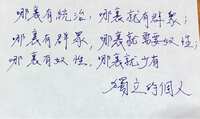 哪裏有統治，哪裏就有群眾；
哪裏有群眾，哪裏就需要奴性；
哪裏有奴性，哪裏就少有
獨立的個人